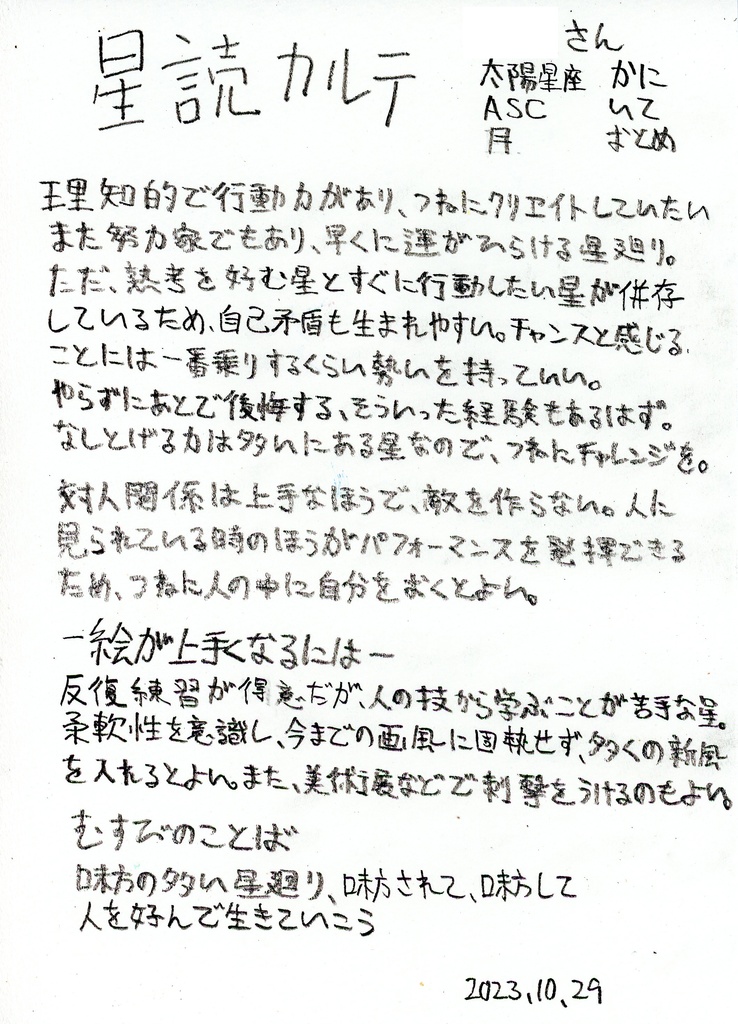 さん
星読カルテ
太陽星座 かに
ASC いて
月 おとめ
理知的で行動力があり、つねにクリエイトしていたい
また努力家でもあり、早くに運がひらける星廻り。
ただ、熟考を好む星とすぐに行動したい星が併存
しているため、自己矛盾も生まれやすい。チャンスと感じる
ことには一番乗りするくらい勢いを持っていい。
やらずにあとで後悔する、そういった経験もあるはず。
なしとげる力は多いにある星なので、つねにチャレンジを。
対人関係は上手なほうで、敵を作らない。人に
見られている時のほうがパフォーマンスを発揮できる
ため、つねに人の中に自分をおくとよい。
ー絵が上手くなるにはー
反復練習が得意だが、人の技から学ぶことが苦手な星。
柔軟性を意識し、今までの画風に固執せず、多くの新風
を入れるとよい。また、美術展などで刺撃をうけるのもよい。
むすびのことば
味方の多い星廻り、味方されて、味方して
人を好んで生きていこう
2023.10.29